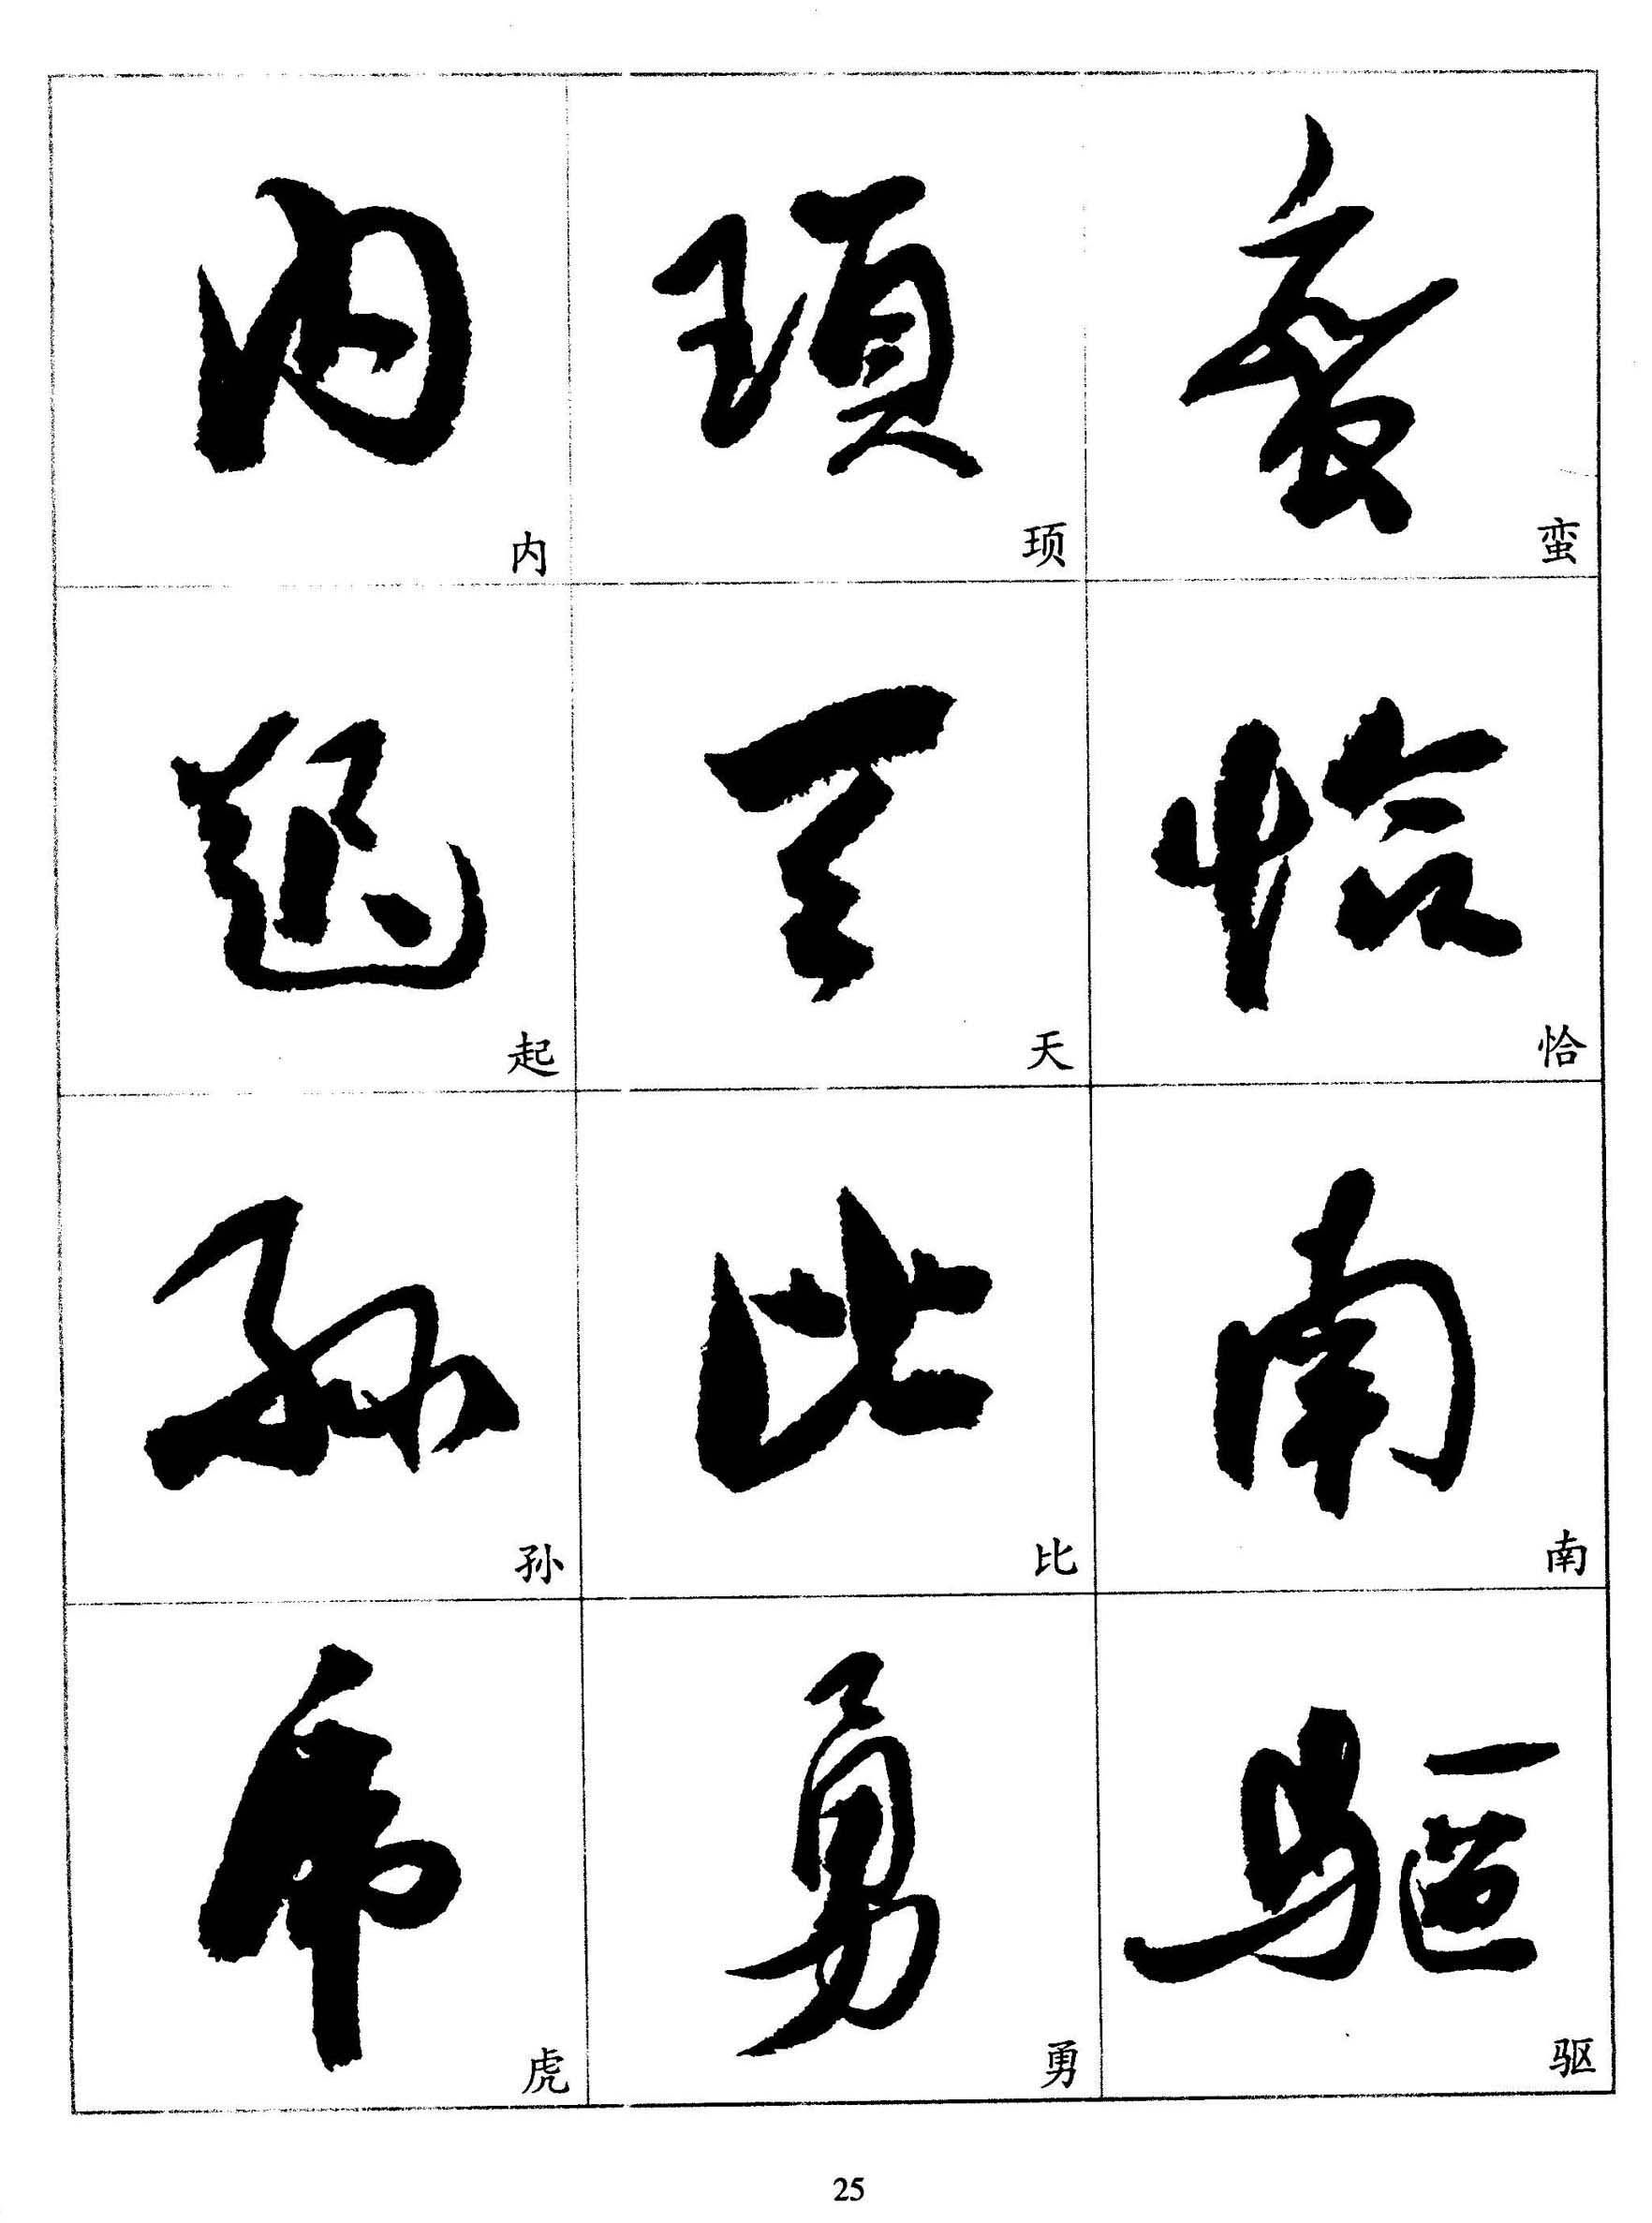 内 顼 蛮
起 天 恰
孙 比 南
虎 勇 驱
25